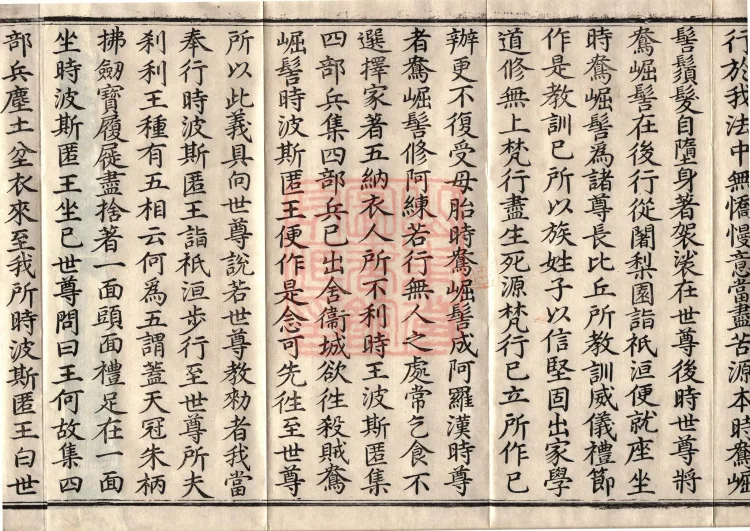 行於我法中無憍慢意當盡苦源本時鴦崛
髻鬚髮自墮身著袈裟在世尊後時世尊將
鴦崛髻在後行從闍梨園詣祇洹便就座坐
時鴦崛髻爲諸尊長比丘所教訓威儀禮節
作是教訓已所以族姓子以信堅固出家學
道修無上梵行盡生死源梵行已立所作已
辦更不復受母胎時鴦崛髻成阿羅漢時尊
者鴦崛髻修阿練若行無人之處常乞食不
選擇家著五納衣人所不利時王波斯匿集
四部兵集四部兵已出舍衞城欲往殺賊鴦
崛髻時波斯匿王便作是念可先往至世尊
所以此義具向世尊說若世尊教勑者我當
奉行時波斯匿王詣祇洹步行至世尊所夫
刹利王種有五相云何爲五謂蓋天冠朱柄
拂劒寶履屣盡捨著一面頭面禮足在一面
坐時波斯匿王坐已世尊問曰王何故集四
部兵塵土坌衣來至我所時波斯匿王白世